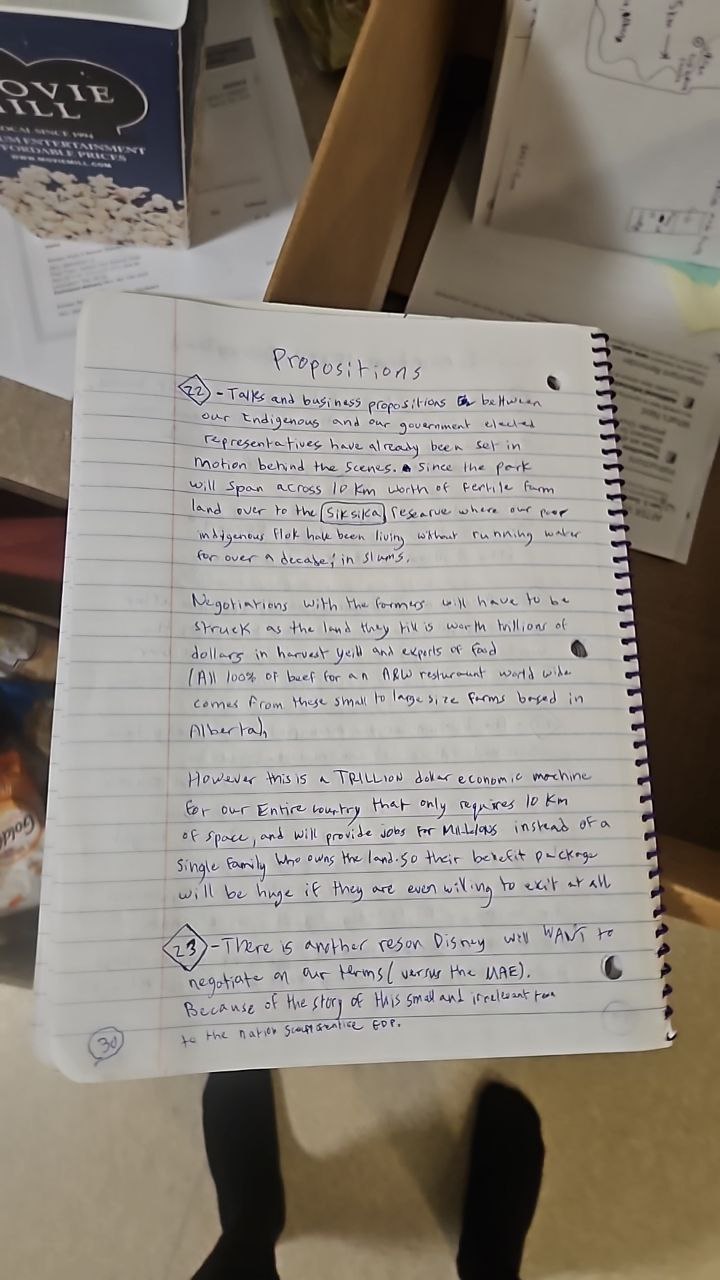 OVIE
ILL
OCAL SINCE 1994
UM ENTERTAINMENT
FORDABLE PRICES
WWW.MOVIEMILL.COM
Propositions
22 - Talks and business propositions bettween
our Indigenous and our government elected
representatives have already been set in
motion behind the scenes. Since the park
will span across 10 Km worth of fertile farm
land over to the Siksika researve where our poor
indigenous flok have been living without running water
for over a decade, in slums.
Negotiations with the farmers will have to be
struck as the land they till is worth trillions of
dollars in harvest yeild and exports of food
(All 100% of beef for an A&W resturaunt world wide
comes from these small to large size farms based in
Alberta),
However this is a TRILLION dollar economic machine
for our Entire country that only requires 10 Km
of space, and will provide jobs for MILLIONS instead of a
single family who owns the land. So their benefit package
will be huge if they are even willing to exit at all
23 - There is another reson Disney will WANT to
negotiate on our terms (versus the UAE).
Because of the story of this small and irrelevant
to the nation
30
Gold